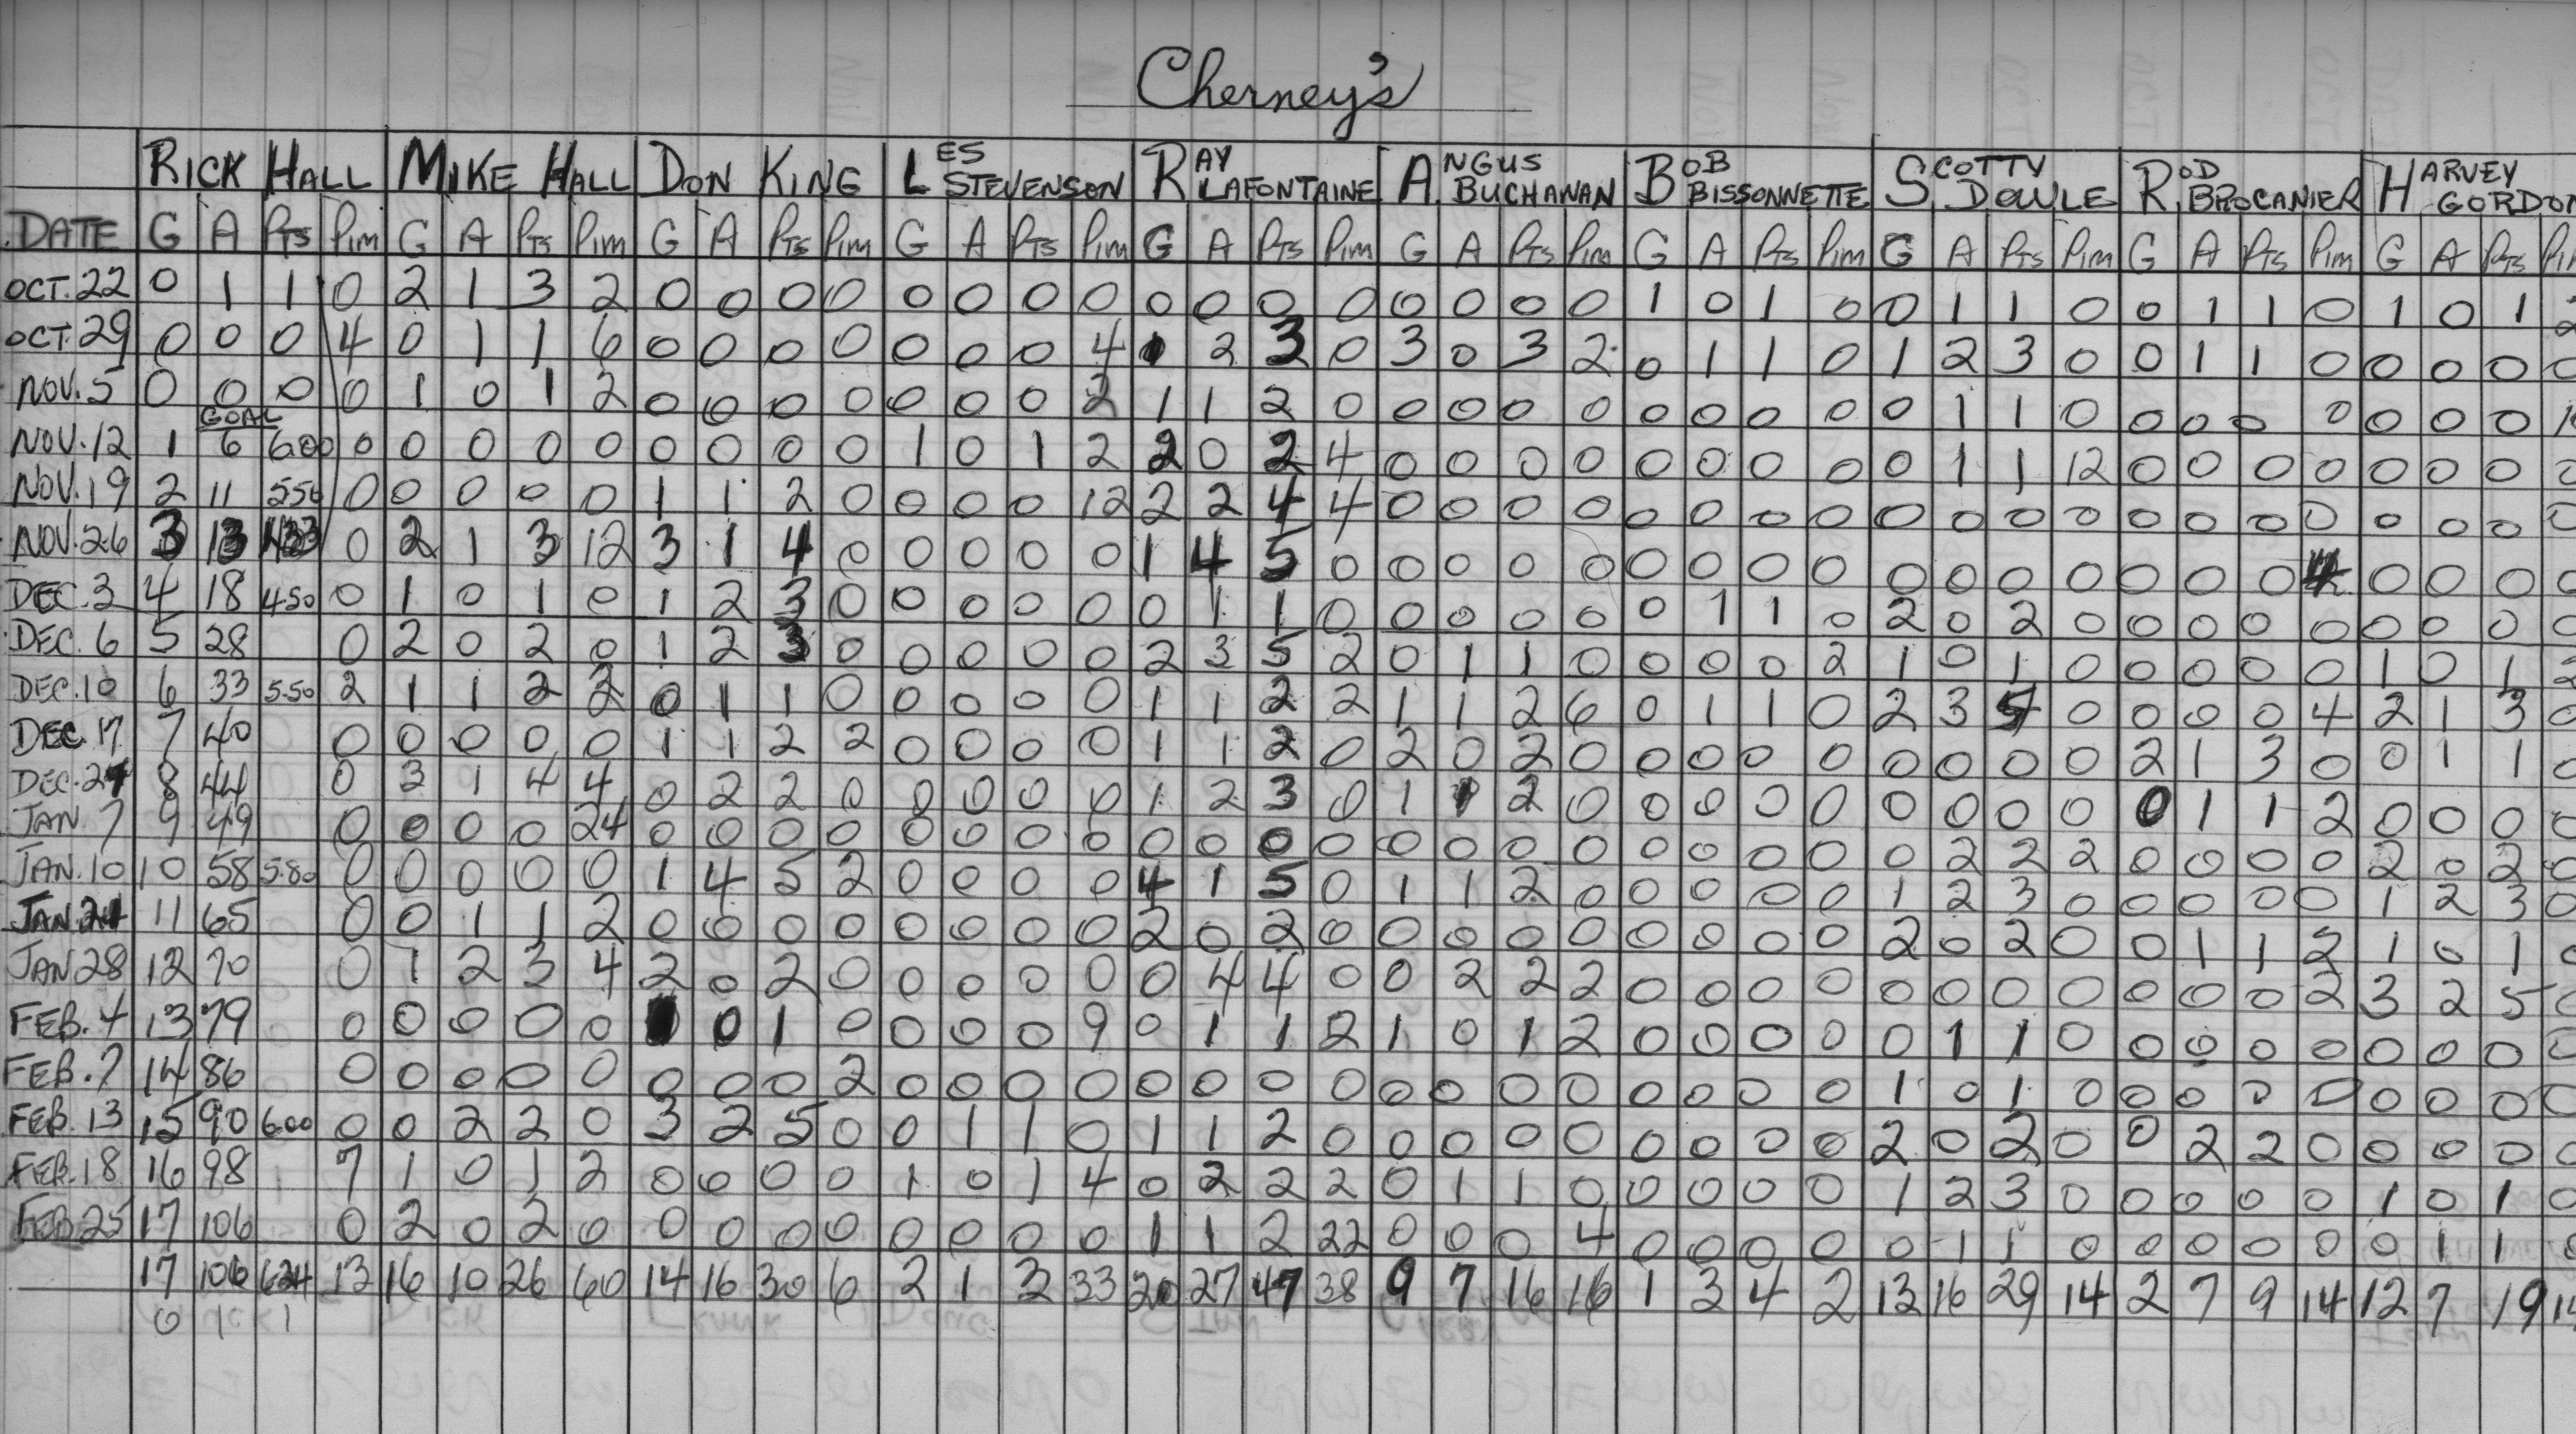 Cherney's
RICK HALL MIKE HALL DON KING LES STEVENSON RAY LAFONTAINE ANGUS BUCHANAN BOB BISSONNETTE SCOTTY DOULE ROD BROCANIER HARVEY GORDON
DATE G A PTS Pim G A PTS Pim G A PTS Pim G A PTS Pim G A PTS Pim G A PTS Pim G A PTS Pim G A PTS Pim G A PTS Pim G A PTS
OCT. 22 0 1 1 0 2 1 3 2 0 0 0 0 0 0 0 0 0 0 0 0 0 0 0 0 1 0 1 0 0 1 1 0 0 1 1 0 1 0 1 2
OCT. 29 0 0 0 4 0 1 1 6 0 0 0 0 0 0 0 4 1 2 3 0 3 0 3 2 0 1 1 0 1 2 3 0 0 1 1 0 0 0 0 0
NOV. 5 0 0 0 0 1 0 1 2 0 0 0 0 0 0 0 2 1 1 2 0 0 0 0 0 0 0 0 0 0 1 1 0 0 0 0 0 0 0 0
GOAL
NOV. 12 1 6 600 0 0 0 0 0 0 0 0 0 1 0 1 2 2 0 2 4 0 0 0 0 0 0 0 0 0 1 1 12 0 0 0 0 0 0 0 0
NOV. 19 2 11 550 0 0 0 0 0 1 1 2 0 0 0 0 12 2 2 4 4 0 0 0 0 0 0 0 0 0 0 0 0 0 0 0 0 0 0 0 0
NOV. 26 3 13 433 0 2 1 3 12 3 1 4 0 0 0 0 0 1 4 5 0 0 0 0 0 0 0 0 0 0 0 0 0 0 0 0 4 0 0 0 0
DEC. 3 4 18 4.50 0 1 0 1 0 1 2 3 0 0 0 0 0 0 1 1 0 0 0 0 0 0 1 1 0 2 0 2 0 0 0 0 0 0 0 0 0
DEC. 6 5 28 0 2 0 2 0 1 2 3 0 0 0 0 0 2 3 5 2 0 1 1 0 0 0 0 2 1 0 1 0 0 0 0 0 1 0 1 2
DEC. 10 6 33 5.50 2 1 1 2 2 0 1 1 0 0 0 0 0 1 1 2 2 1 1 2 6 0 1 1 0 2 3 5 0 0 0 0 4 2 1 3 0
DEC. 17 7 40 0 0 0 0 0 1 1 2 2 0 0 0 0 1 1 2 0 2 0 2 0 0 0 0 0 0 0 0 0 2 1 3 0 0 1 1 0
DEC. 27 8 44 0 3 1 4 4 0 2 2 0 0 0 0 0 1 2 3 0 1 1 2 0 0 0 0 0 0 0 0 0 0 1 1 2 0 0 0 0
JAN. 7 9 49 0 0 0 0 24 0 0 0 0 0 0 0 0 0 0 0 0 0 0 0 0 0 0 0 0 0 2 2 2 0 0 0 0 2 0 2 0
JAN. 10 10 58 5.80 0 0 0 0 0 1 4 5 2 0 0 0 0 4 1 5 0 1 1 2 0 0 0 0 0 1 2 3 0 0 0 0 0 1 2 3 0
JAN. 21 11 65 0 0 1 1 2 0 0 0 0 0 0 0 0 2 0 2 0 0 0 0 0 0 0 0 0 2 0 2 0 0 1 1 2 1 0 1
JAN 28 12 70 0 1 2 3 4 2 0 2 0 0 0 0 0 0 4 4 0 0 2 2 2 0 0 0 0 0 0 0 0 0 0 0 2 3 2 5 0
FEB. 4 13 79 0 0 0 0 0 0 1 0 0 0 0 9 0 1 1 2 1 0 1 2 0 0 0 0 0 1 1 0 0 0 0 0 0 0 0 0
FEB. 7 14 86 0 0 0 0 0 0 0 0 2 0 0 0 0 0 0 0 0 0 0 0 0 0 0 0 0 1 0 1 0 0 0 0 0 0 0 0 0
FEB. 13 15 90 600 0 0 2 2 0 3 2 5 0 0 1 1 0 1 1 2 0 0 0 0 0 0 0 0 0 2 0 2 0 0 2 2 0 0 0 0 0
FEB. 18 16 98 7 1 0 1 2 0 0 0 0 1 0 1 4 0 2 2 2 0 1 1 0 0 0 0 0 1 2 3 0 0 0 0 0 1 0 1 0
FEB. 25 17 106 0 2 0 2 0 0 0 0 0 0 0 0 0 1 1 2 22 0 0 0 4 0 0 0 0 0 1 1 0 0 0 0 0 0 1 1 0
17 106 624 13 16 10 26 60 14 16 30 6 2 1 3 33 20 27 47 38 9 7 16 16 1 3 4 2 13 16 29 14 2 7 9 14 12 7 19